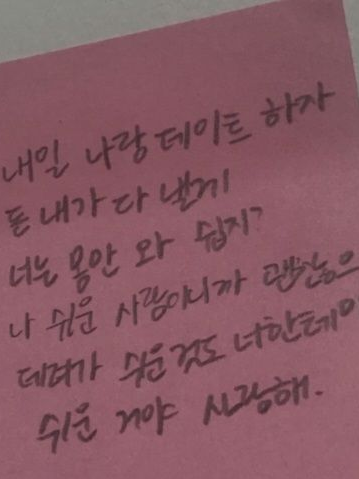 내일 나랑 데이트 하자
돈 내가 다 낼게
너는 몸만 와 쉽지?
나 쉬운 사람이니까
데려가 쉬운것도 너한테
쉬운 거야 사랑해.